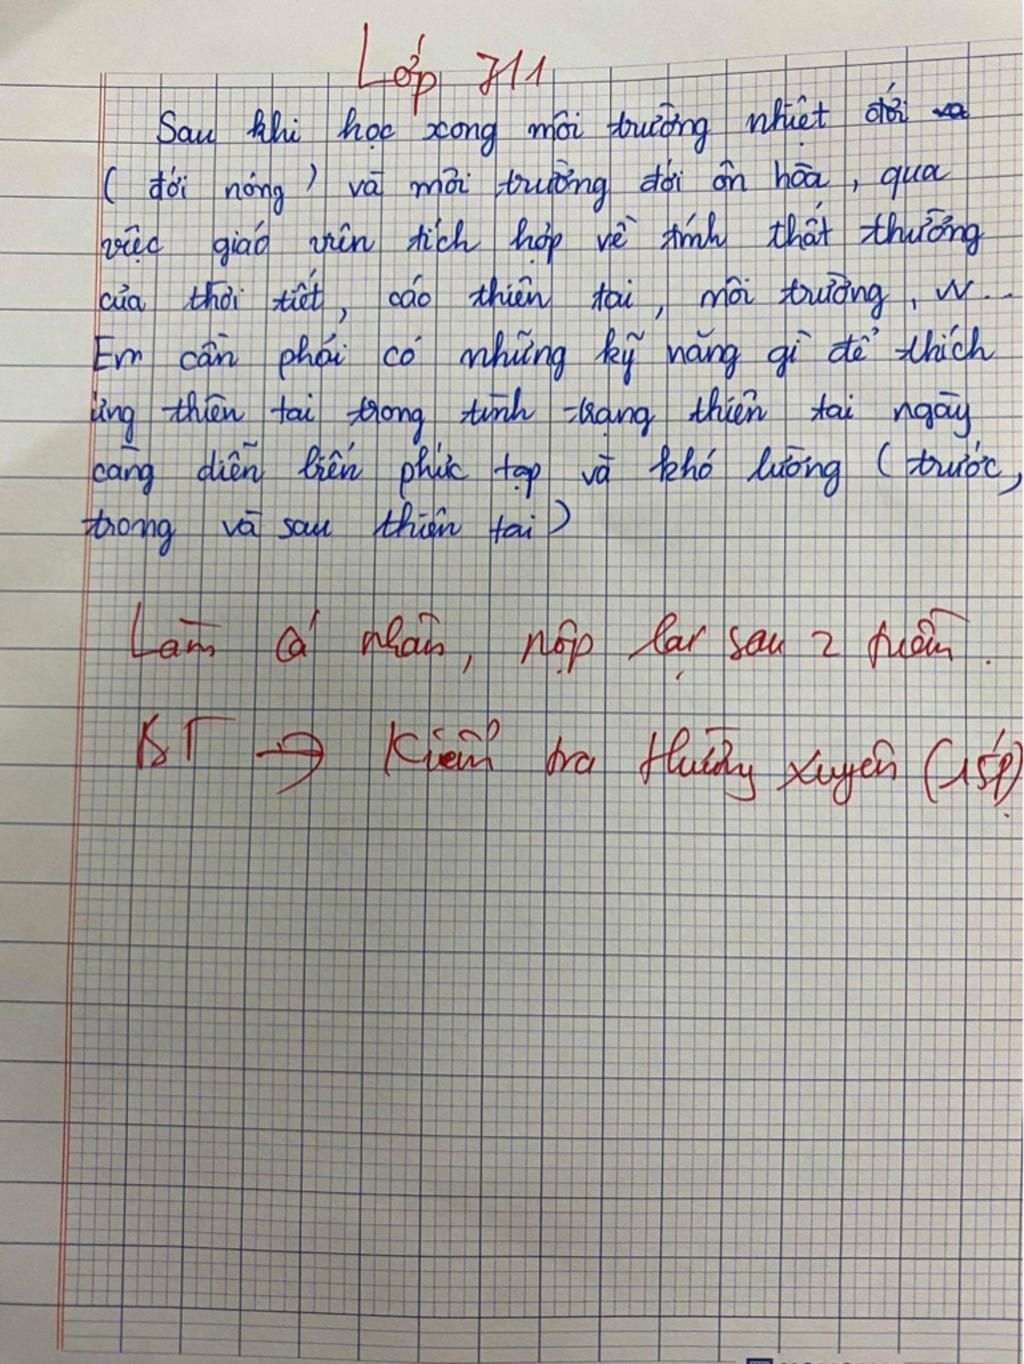 Lớp 711
Sau khi học xong môi trường nhiệt đới và
( đới nóng ) và môi trường đới ôn hòa, qua
việc giáo viên tích hợp về tính thất thường
của thời tiết, các thiên tai, môi trường, vv...
Em cần phải có những kỹ năng gì để thích
ứng thiên tai trong tình trạng thiên tai ngày
càng diễn biến phức tạp và khó lường (trước,
trong và sau thiên tai)
Làm cá nhân, nộp lại sau 2 tuần.
BT → Kiểm tra thường xuyên (15p)